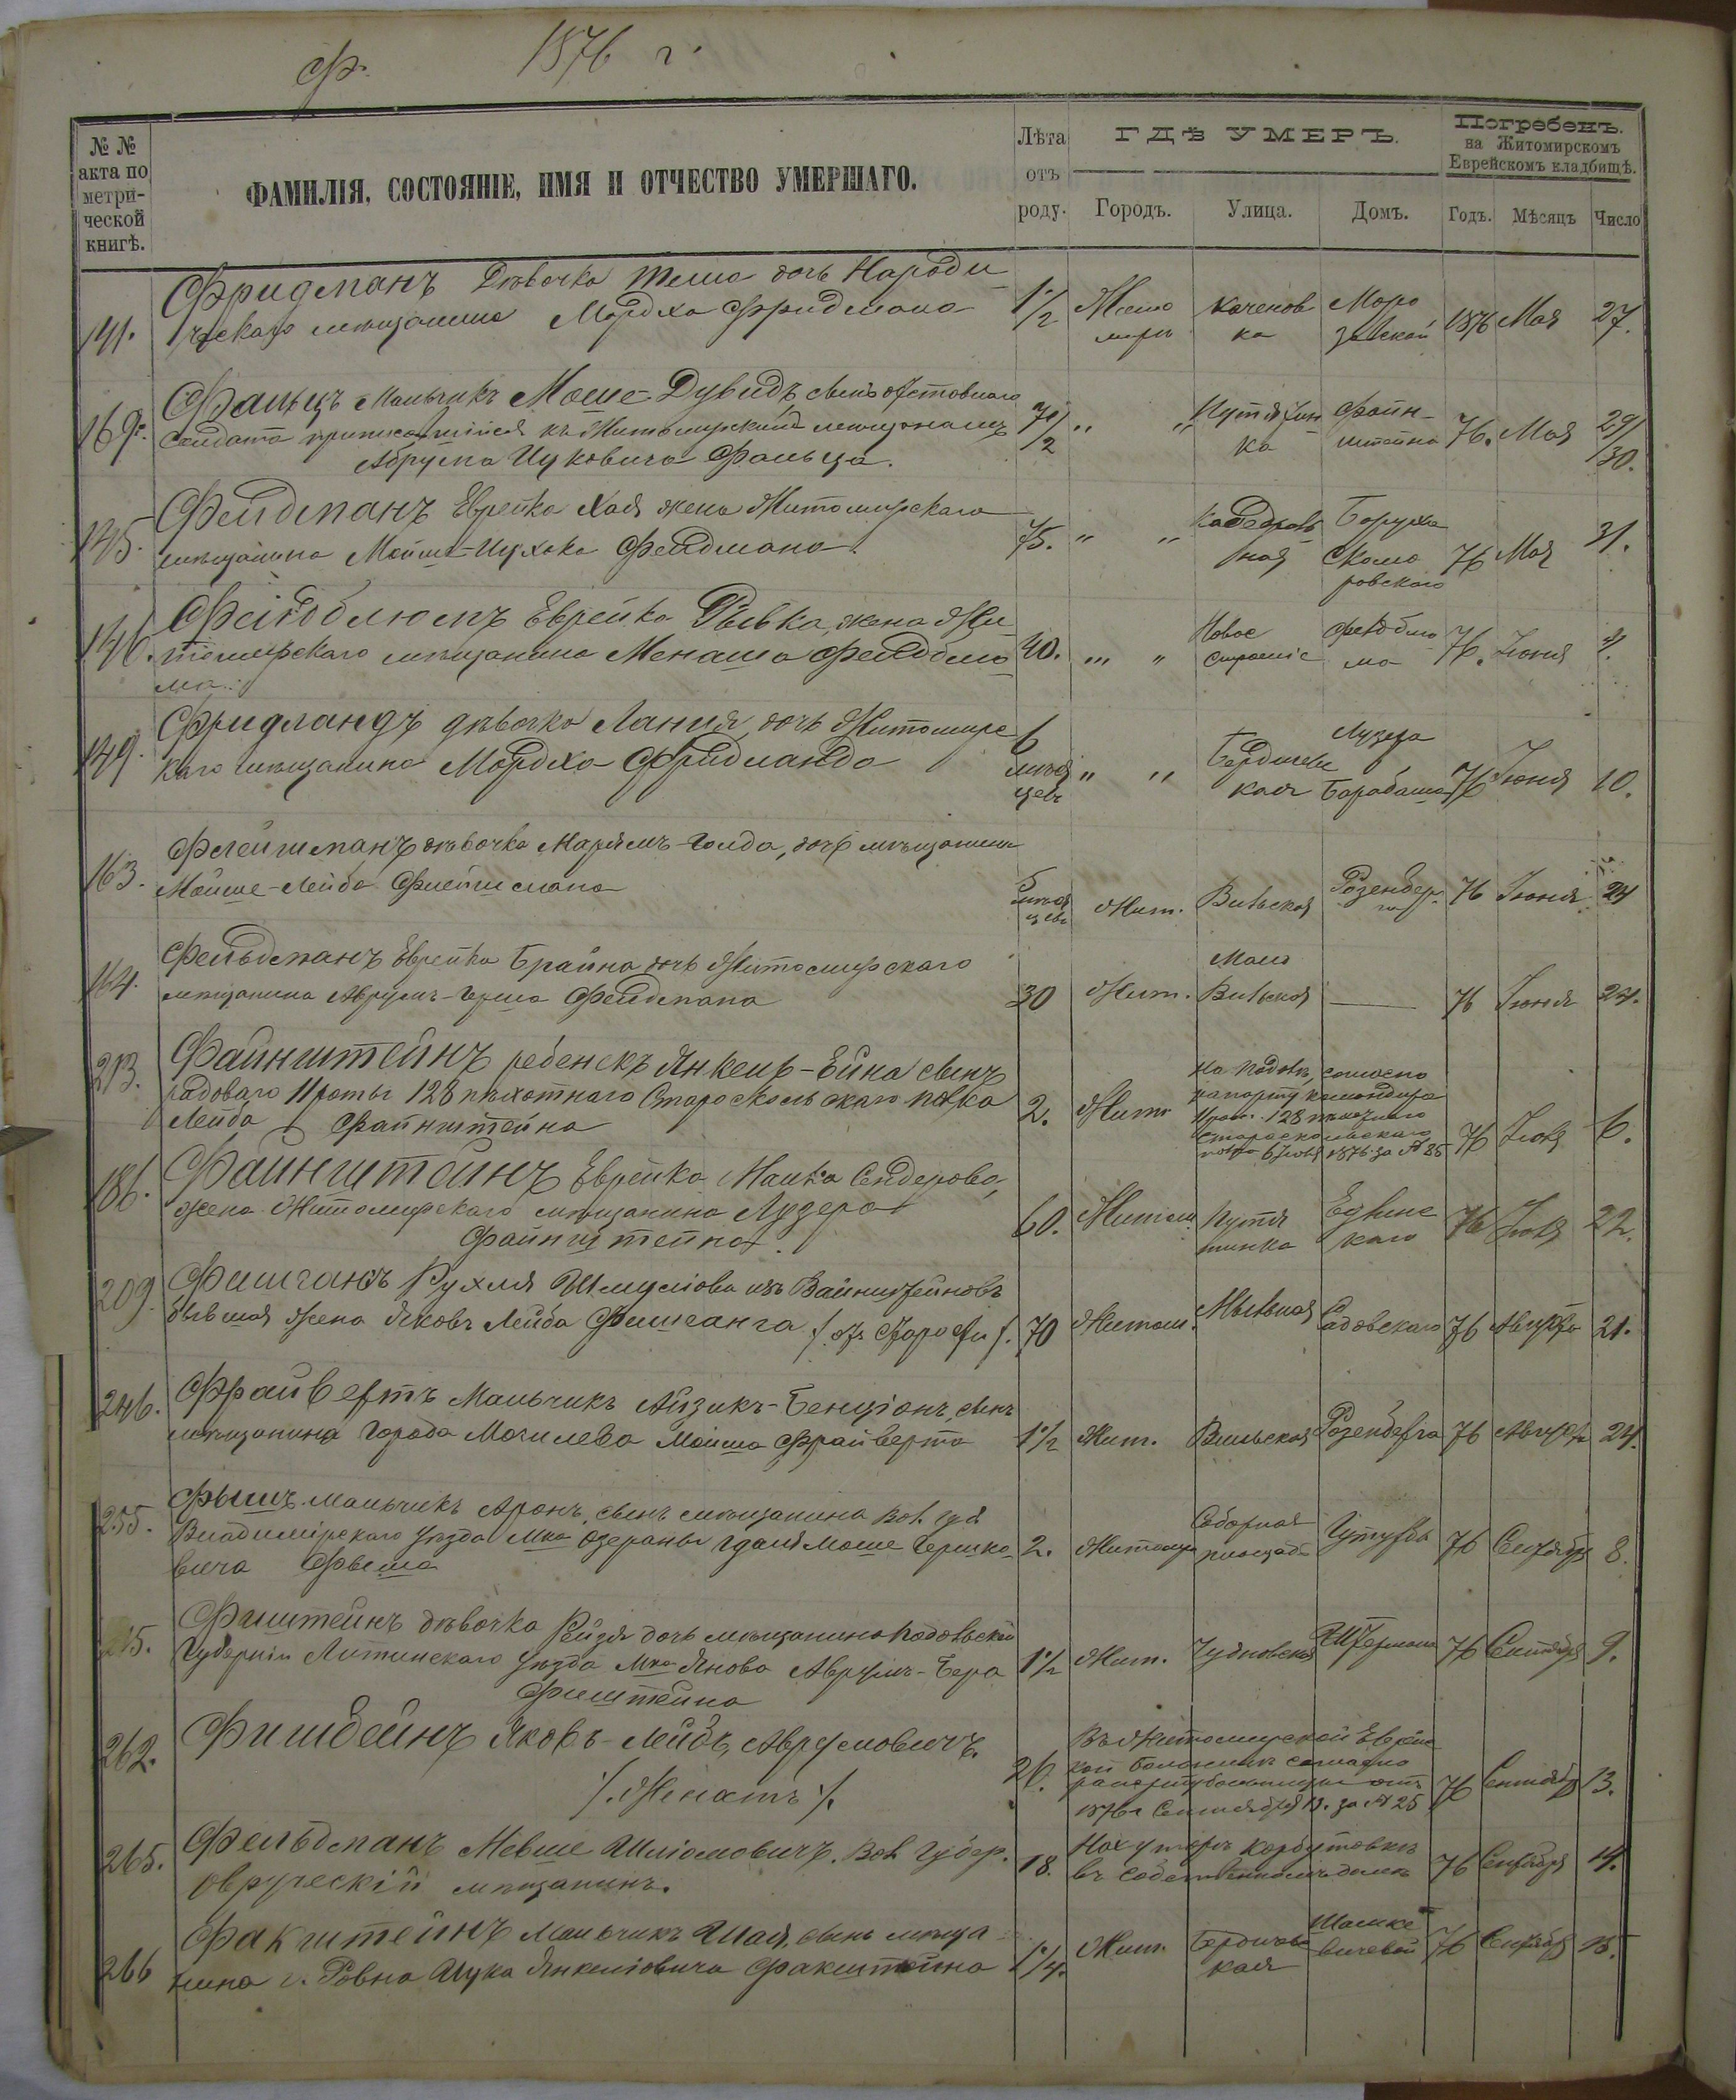 Ф. 1876 г.
№ № акта по метрической книгѣ.
ФАМИЛІЯ, СОСТОЯНІЕ, ИМЯ И ОТЧЕСТВО УМЕРШАГО.
Лѣта отъ роду.
ГДѢ УМЕРЪ.
Городъ. Улица. Домъ.
Погребенъ. на Житомирскомъ Еврейскомъ кладбищѣ.
Годъ. Мѣсяцъ Число
141. Фридманъ Девочка дочь Народи
чскаго мѣщанина Мордха Фридмана 1 1/2 Житомиръ Каченовка 1876 Мая 27.
169. Фальцъ Мальчикъ Моше-Дувидъ сынъ отставнаго
солдата къ Житомирскимъ мѣщанамъ
Абрума Ицковича Фальца. 7 1/2 " " Путятинка Файнштейна 76. Мая 29/30.
145. Фельдманъ Еврейка Хая жена Житомирскаго
мѣщанина Мойше-Ицхока Фельдмана. 75. " " Каѳедральная Боруха Скоморовскаго 76 Мая 31.
146. Фейдблюмъ Еврейка Рывка, жена Жи
томирскаго мѣщанина Менаша Фейдблю
ма. 40. " " Новое строеніе Фейдблюма 76. Іюня
149. Фридландъ дѣвочка дочь Житомирс
каго мѣщанина Мордха Фридланда 6 мѣсяцевъ " " Бердичевская Лузера Барабаша 76 Іюня 10.
163. Флейшманъ дѣвочка Марямъ-Голда, дочь мѣщанина
Мойше-Лейба Флейшмана мѣсяцевъ Жит. Вильская Розенберга 76 Іюня 24
164. Фельдманъ Еврейка Брайна дочь Житомирскаго
мѣщанина Аврумъ-Герша Фельдмана 30 Жит. Мало Вильская — 76 Іюня 24.
213. Файнштейнъ ребенокъ Янкель-Ейна сынъ
рядоваго 11 роты 128 пѣхотнаго Старооскольскаго полка
Лейба Файнштейна 2. Жит. согласно
рапорту командира
11 рот. 128 пѣхотнаго
Старооскольскаго
полка 6 Іюля 1876 за № 85 76 Іюля 6.
186. Файнштейнъ Еврейка Малка Сендерова,
жена Житомирскаго мѣщанина Лузера
Файнштейна. 60. Житом. Путятинка 76 Іюля 22.
209. Фишгангъ Рухля Шмуліова изъ Вайнштейновъ
бывшая жена Яковъ Лейба Фишганга 70 Житом. Мыльная Садовскаго 76 Августа 21.
246. Фрайвертъ Мальчикъ Айзикъ-Бенціонъ, сынъ
мѣщанина города Могилева Мойша Фрайверта 1 1/2 Жит. Вильская Розенберга 76 Августа 24.
255. Фышъ мальчикъ Аронъ, сынъ мѣщанина Вол. губ.
Владимірскаго уѣзда Мка Озераны Гдаля Моше Гершко
вича Фыша 2. Житомиръ Соборная площадь 76 Сентября 8.
Фиштейнъ дѣвочка Рейзя дочь мѣщанина Подольской
Губерніи Литинскаго уѣзда Мка Янова Аврумъ-Бера
Фиштейна 1 1/2 Жит. Чудновская 76 Сентября 9.
262. Фишбейнъ Яковъ-Лейбъ Аврумовичъ.
/. Женатъ /. 26. Въ Житомирской Еврейс
кой больницѣ согласно
рапорту больницы отъ
1876 г Сентября 13. за № 25 76 Сентября 13.
265. Фельдманъ Мевше Шліомовичъ. Вол. губер.
овручскій мѣщанинъ. 18. На хуторѣ Корбутовкѣ
въ собственномъ домѣ 76 Сентября 14.
266 Факштейнъ Мальчикъ Шая, сынъ мѣща
нина г. Ровна Ицка Янкеліовича Факштейна 1 1/4. Жит. Бердичевская 76 Сентября 15.